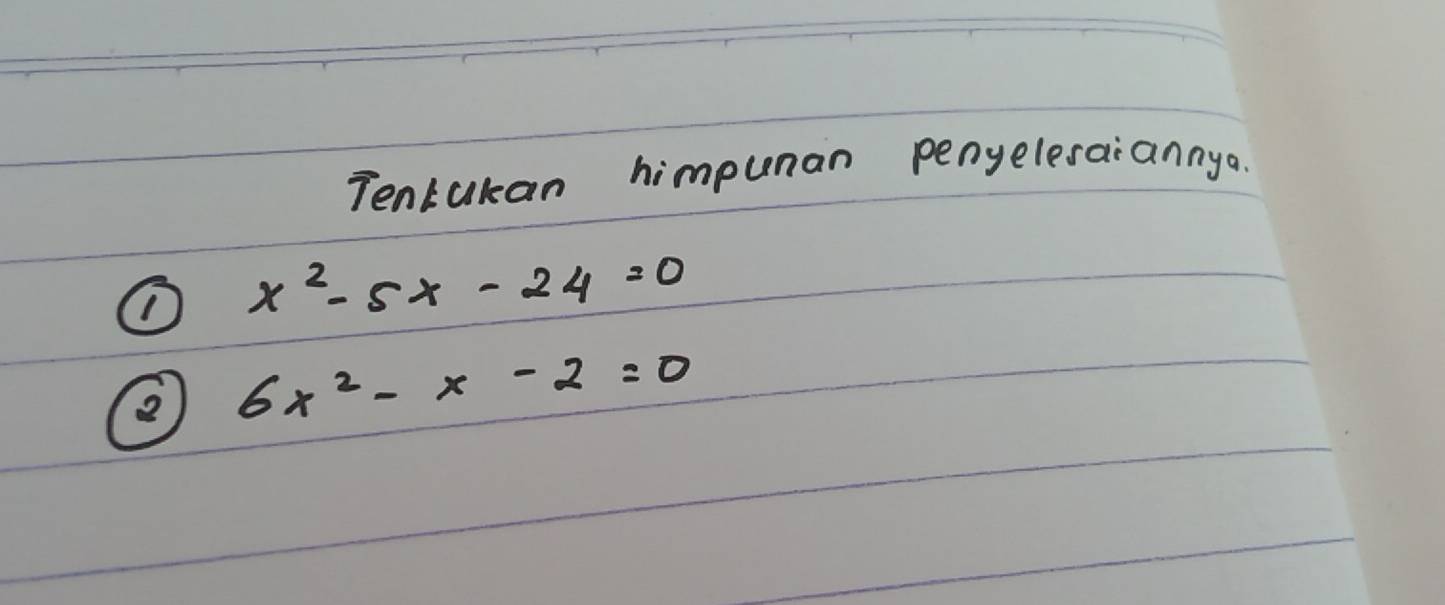 Tentukan himpunan penyelesaiannya.
① x² - 5x - 24 = 0
② 6x² - x - 2 = 0